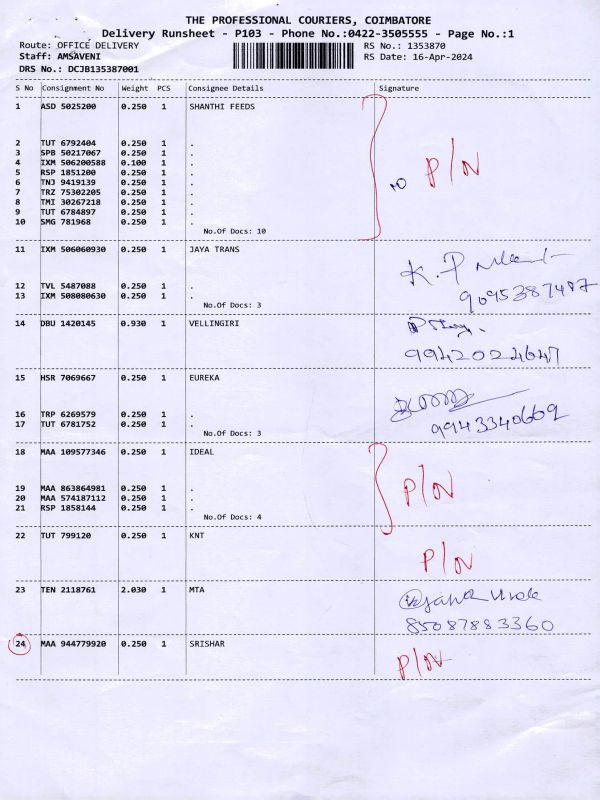 THE PROFESSIONAL COURIERS, COIMBATORE
Delivery Runsheet - P103 - Phone No.:0422-3505555 - Page No.:1
Route: OFFICE DELIVERY RS No.: 1353870
Staff: AMSAVENI RS Date: 16-Apr-2024
DRS No.: DCJB135387001
S No Consignment No Weight PCS Consignee Details Signature
1 ASD 5025200 0.250 1 SHANTHI FEEDS
2 TUT 6792404 0.250 1 .
3 SPB 50217067 0.250 1 .
4 IXM 506200588 0.100 1 .
5 RSP 1851200 0.250 1 .
10 P/N
6 TNJ 9419139 0.250 1 .
7 TRZ 75302205 0.250 1 .
8 TMI 30267218 0.250 1 .
9 TUT 6784897 0.250 1 .
10 SMG 781968 0.250 1 .
No.Of Docs: 10
11 IXM 506060930 0.250 1 JAYA TRANS
K. P
12 TVL 5487088 0.250 1 .
13 IXM 508080630 0.250 1 .
9095387487
No.Of Docs: 3
14 DBU 1420145 0.930 1 VELLINGIRI
99420224647
15 HSR 7069667 0.250 1 EUREKA
16 TRP 6269579 0.250 1 .
17 TUT 6781752 0.250 1 .
9943340669
No.Of Docs: 3
18 MAA 109577346 0.250 1 IDEAL
19 MAA 863864981 0.250 1 .
P/N
20 MAA 574187112 0.250 1 .
21 RSP 1858144 0.250 1 .
No.Of Docs: 4
22 TUT 799120 0.250 1 KNT
P/N
23 TEN 2118761 2.030 1 MTA
85087883360
24 MAA 944779920 0.250 1 SRISHAR
P/N